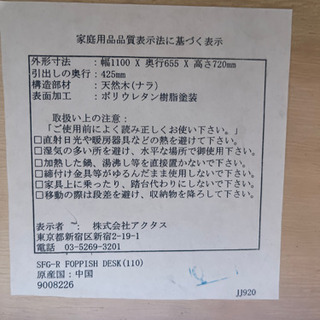 家庭用品品質表示法に基づく表示
外形寸法 : 幅1100 X 奥行655 X 高さ720mm
引出しの奥行 : 425mm
構造部材 : 天然木(ナラ)
表面加工 : ポリウレタン樹脂塗装
取扱い上の注意 :
「ご使用前によく読み正しくお使い下さい。」
□直射日光や暖房器具などの熱を避けて下さい。
□湿気の多い所を避け、水平な場所で御使用下さい。
□加熱した鍋、湯沸し等を直接置かないで下さい。
□締付け金具等がゆるんだまま使用しないで下さい。
□家具上に乗ったり、踏台代わりにしないで下さい。
□移動の際は段差を避け、収納物を降ろして下さい。
表示者 : 株式会社アクタス
東京都新宿区新宿2-19-1
電話 03-5269-3201
SFG-R FOPPISH DESK(110)
原産国 : 中国
9008226
JJ920